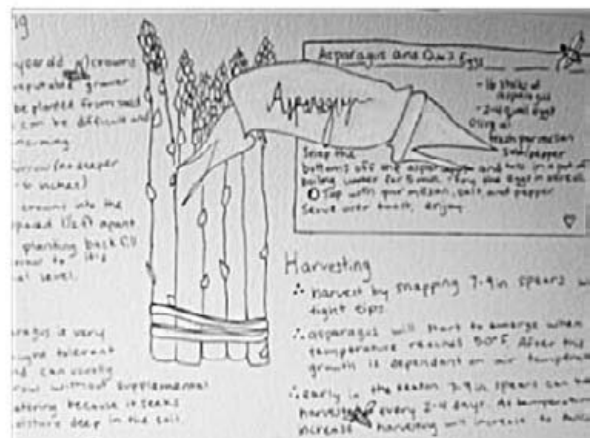 ng
year old crowns
reputable grower
be planted from seed
can be difficult and
(no deeper
inches)
crowns into the
spaced 1 1/2 ft apart
planting back fill
level.
aragus is very
tolerant
can usually
row without supplemental
watering because it seeks
moisture deep in the soil.
Asparagus
Asparagus and Quail Eggs
- 16 stalks of
asparagus
- 2-4 quail eggs
Olive oil
fresh parmesan
Salt/pepper
Snap the
bottoms off the asparagus and in a pot of
boiling water for 5 min. Fry the eggs in
Top with parmesan, salt, and pepper
Serve over toast, enjoy.
Harvesting
harvest by snapping 7-9 in spears
tight tips.
asparagus will start to emerge when
temperature reaches 50°F. After this
growth is dependant on air
early in the season 7-9 in spears can
harvested every 2-4 days. As temperatures
increase harvesting will increase to